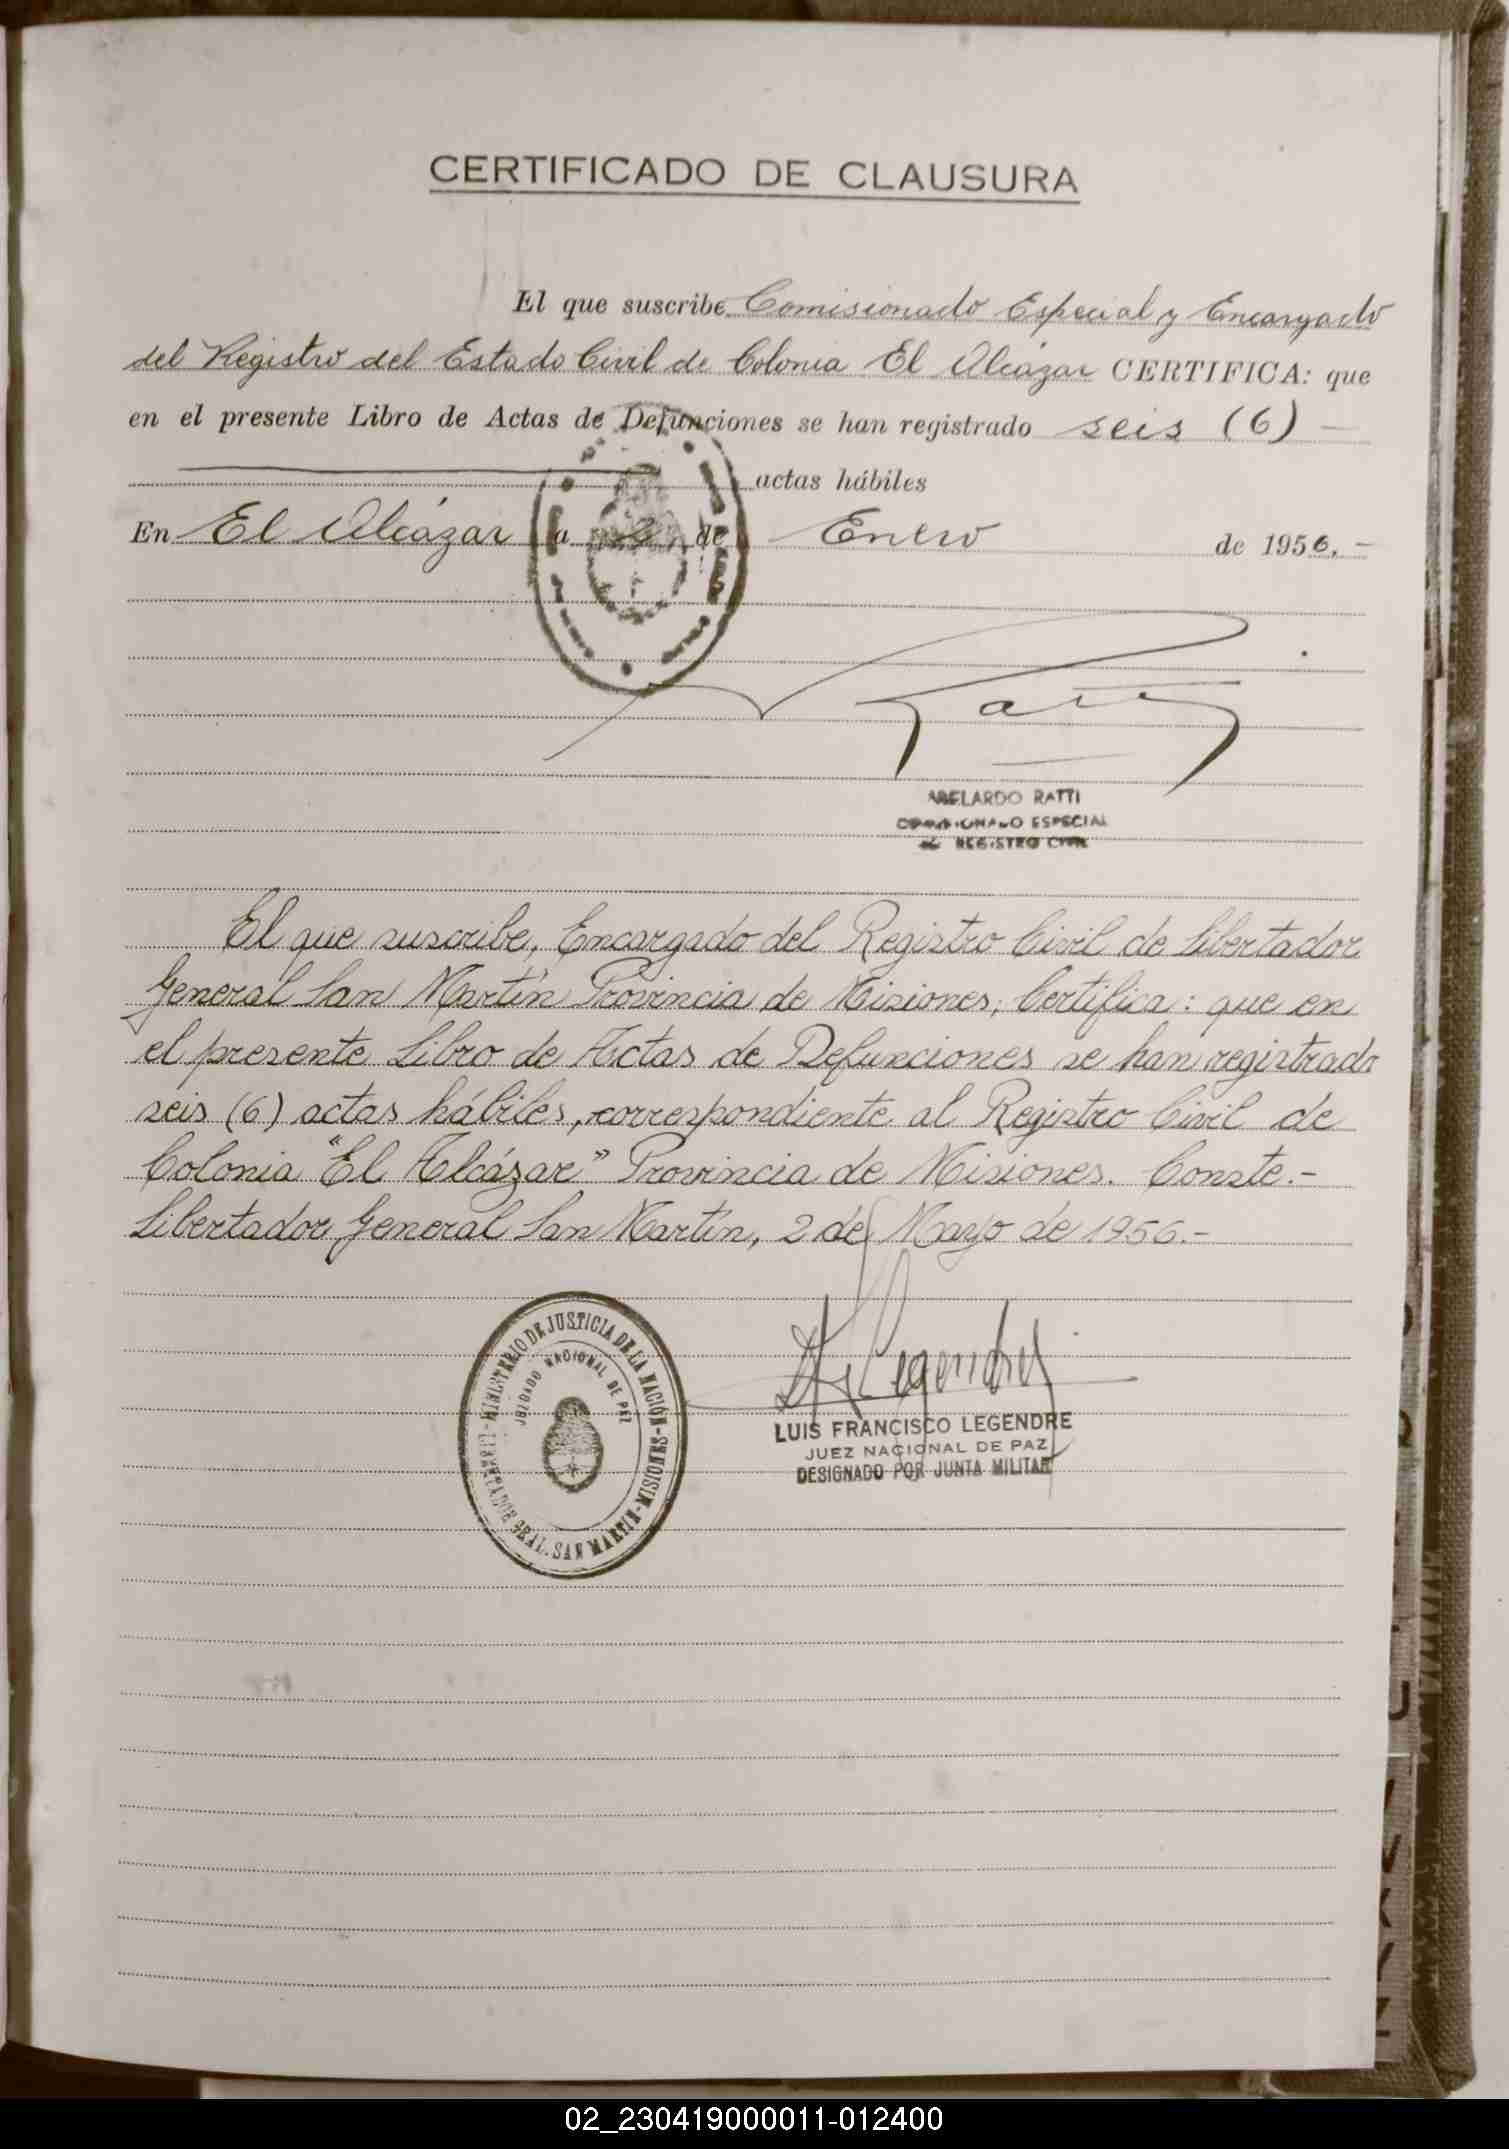 CERTIFICADO DE CLAUSURA
El que suscribe Comisionado Especial y Encargado
del Registro del Estado Civil de Colonia El Alcázar CERTIFICA: que
en el presente Libro de Actas de Defunciones se han registrado seis (6) —
actas hábiles
En El Alcázar a 2 de Enero de 1956.-
Ratti
ABELARDO RATTI
COMISIONADO ESPECIAL
REGISTRO CIVIL
El que suscribe, Encargado del Registro Civil de Libertador
General San Martín Provincia de Misiones, Certifica: que en
el presente Libro de Actas de Defunciones se han registrado
seis (6) actas hábiles, correspondiente al Registro Civil de
Colonia "El Alcázar" Provincia de Misiones. Conste.-
Libertador General San Martín, 2 de Mayo de 1956.-
MINISTERIO DE JUSTICIA DE LA NACIÓN-MISIONES-
JUZGADO NACIONAL DE PAZ
LIBERTADOR GRAL. SAN MARTIN-
Legendre
LUIS FRANCISCO LEGENDRE
JUEZ NACIONAL DE PAZ
DESIGNADO POR JUNTA MILITAR
02_230419000011-012400